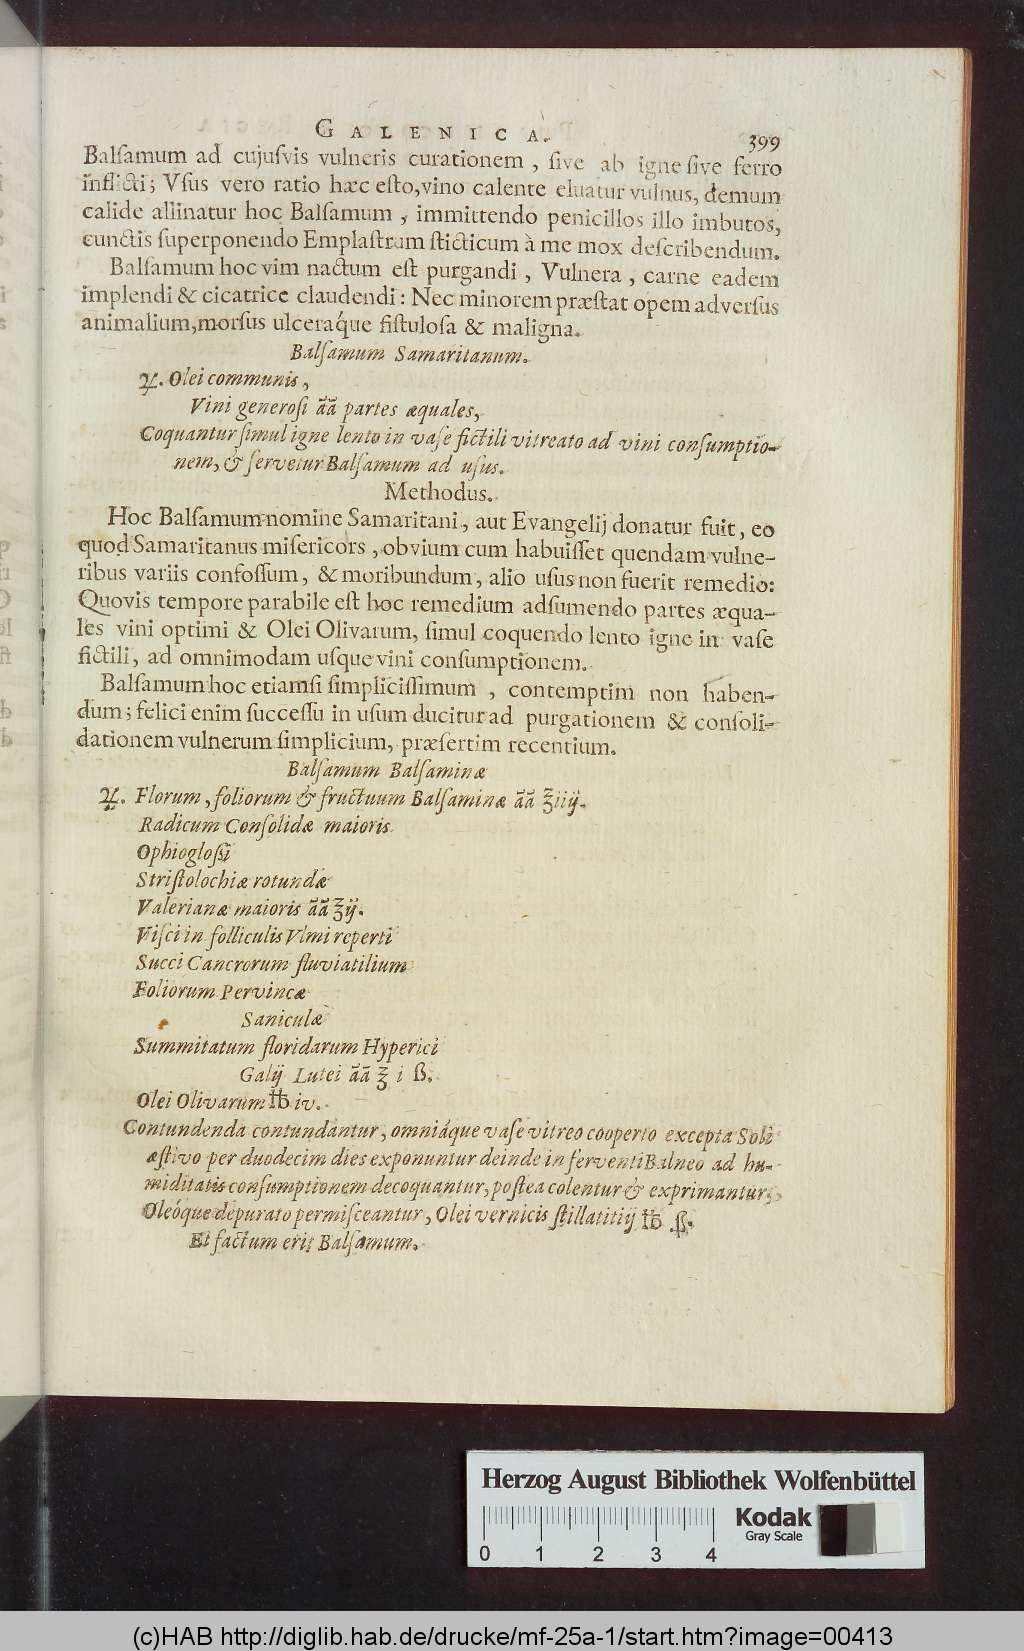 GALENICA. 399
Balſamum ad cujuſvis vulneris curationem, ſive ab igne ſive ferro
inflicti; Vſus vero ratio hæc eſto, vino calente eluatur vulnus, demum
calide allinatur hoc Balſamum, immittendo penicillos illo imbutos,
cunctis ſuperponendo Emplaſtrum ſticticum à me mox deſcribendum.
Balſamum hoc vim nactum eſt purgandi, Vulnera, carne eadem
implendi & cicatrice claudendi: Nec minorem præſtat opem adverſus
animalium, morſus ulceraq́ue fiſtuloſa & maligna.
Balſamum Samaritanum.
♃. Olei communis,
Vini generoſi āā partes æquales,
Coquantur ſimul igne lento in vaſe fictili vitreato ad vini conſumptio-
nem, & ſervetur Balſamum ad uſus.
Methodus.
Hoc Balſamum nomine Samaritani, aut Evangelij donatur fuit, eo
quod Samaritanus miſericors, obvium cum habuiſſet quendam vulne-
ribus variis confoſſum, & moribundum, alio uſus non fuerit remedio:
Quovis tempore parabile eſt hoc remedium adſumendo partes æqua-
les vini optimi & Olei Olivarum, ſimul coquendo lento igne in vaſe
fictili, ad omnimodam uſque vini conſumptionem.
Balſamum hoc etiamſi ſimpliciſſimum, contemptim non haben-
dum; felici enim ſucceſſu in uſum ducitur ad purgationem & conſoli-
dationem vulnerum ſimplicium, præſertim recentium.
Balſamum Balſaminæ
♃. Florum, foliorum & fructuum Balſaminæ āā ℥iiij.
Radicum Conſolidæ maioris
Ophigloſſi
Striſtolochiæ rotundæ
Valerianæ maioris āā ℥ij.
Viſci in folliculis Vlmi reperti
Succi Cancrorum fluviatilium
Foliorum Pervincæ
Saniculæ
Summitatum floridarum Hyperici
Galij Lutei āā ℥ i ß.
Olei Olivarum ℔ iv.
Contundenda contundantur, omniáque vaſe vitreo cooperto excepta Soli
æſtivo per duodecim dies exponuntur deinde in ferventi Balneo ad hu-
miditatis conſumptionem decoquantur, poſtea colentur & exprimantur;
Oleóque depurato permiſceantur, Olei vernicis ſtillatitij ℔ .ß.
Et factum erit Balſamum.
Herzog August Bibliothek Wolfenbüttel
Kodak
Gray Scale
0 1 2 3 4
(c)HAB http://diglib.hab.de/drucke/mf-25a-1/start.htm?image=00413